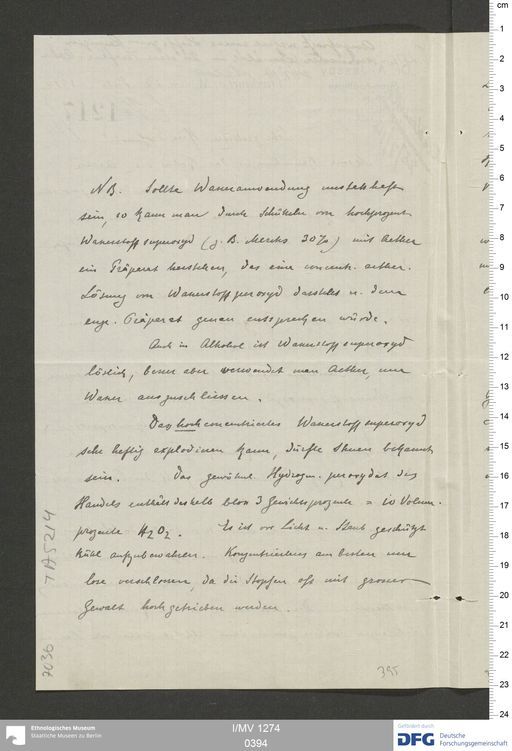 NB. Sollte Wasseranwendung unstatthaft
sein, so kann man durch Schütteln von hochprozent.
Wasserstoffsuperoxyd (z. B. Mercks 30%) mit Aether
ein Präparat herstellen, das eine concentr. aether.
Lösung von Wasserstoffperoxyd darstellt u. dem
engl. Präparat genau entsprechen würde.
Auch in Alkohol ist Wasserstoffsuperoxyd
löslich, besser aber verwendet man Aether, um
Wasser auszuschliessen.
Dass hochconcentriertes Wasserstoffsuperoxyd
sehr heftig explodieren kann, dürfte Ihnen bekannt
sein. Das gewöhnl. Hydrogen. peroxydat. des
Handels enthält deshalb bloss 3 Gewichtsprozente = 10 Volum-
prozente H2O2. Es ist vor Licht u. Staub geschützt
kühl aufzubewahren. Konzentrierteres am besten nur
lose verschlossen, da die Stopfen oft mit grosser
Gewalt hochgetrieben werden.
395
7036
TA5214
1217
cm
1
2
3
4
5
6
7
8
9
10
11
12
13
14
15
16
17
18
19
20
21
22
23
24
Ethnologisches Museum
Staatliche Museen zu Berlin
I/MV 1274
0394
Gefördert durch
DFG Deutsche
Forschungsgemeinschaft